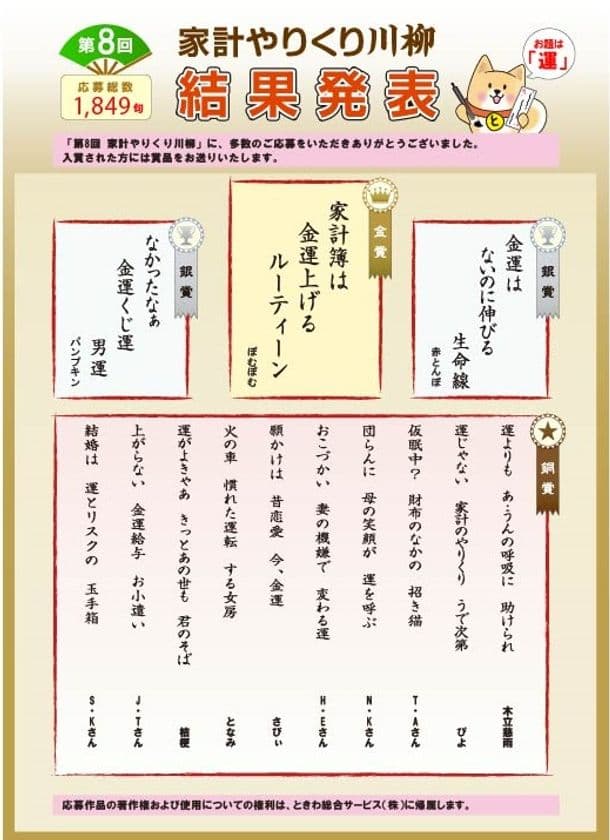 第8回
応募総数
1,849句
家計やりくり川柳
結果発表
お題は
「運」
と
「第8回 家計やりくり川柳」に、多数のご応募をいただきありがとうございました。
入賞された方には賞品をお送りいたします。
金賞
家計簿は
金運上げる
ルーティーン
ぽむぽむ
銀賞
金運は
ないのに伸びる
生命線
赤とんぼ
銀賞
なかったなぁ
金運くじ運
男運
パンプキン
銅賞
運よりも あ・うんの呼吸に 助けられ 木立慈雨
運じゃない 家計のやりくり うで次第 ぴよ
仮眠中? 財布のなかの 招き猫 T・Aさん
団らんに 母の笑顔が 運を呼ぶ N・Kさん
おこづかい 妻の機嫌で 変わる運 H・Eさん
願かけは 昔恋愛 今、金運 さびぃ
火の車 慣れた運転 する女房 となみ
運がよきゃあ きっとあの世も 君のそば 桔梗
上がらない 金運給与 お小遣い J・Tさん
結婚は 運とリスクの 玉手箱 S・Kさん
応募作品の著作権および使用についての権利は、ときわ総合サービス(株)に帰属します。